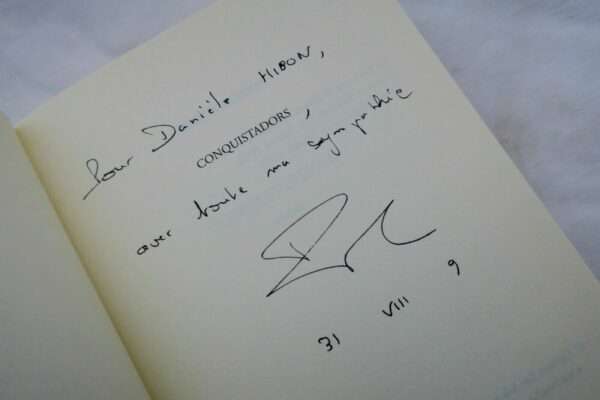 Pour Danièle HIBON,
CONQUISTADORS,
avec toute ma sympathie
31 VIII 9